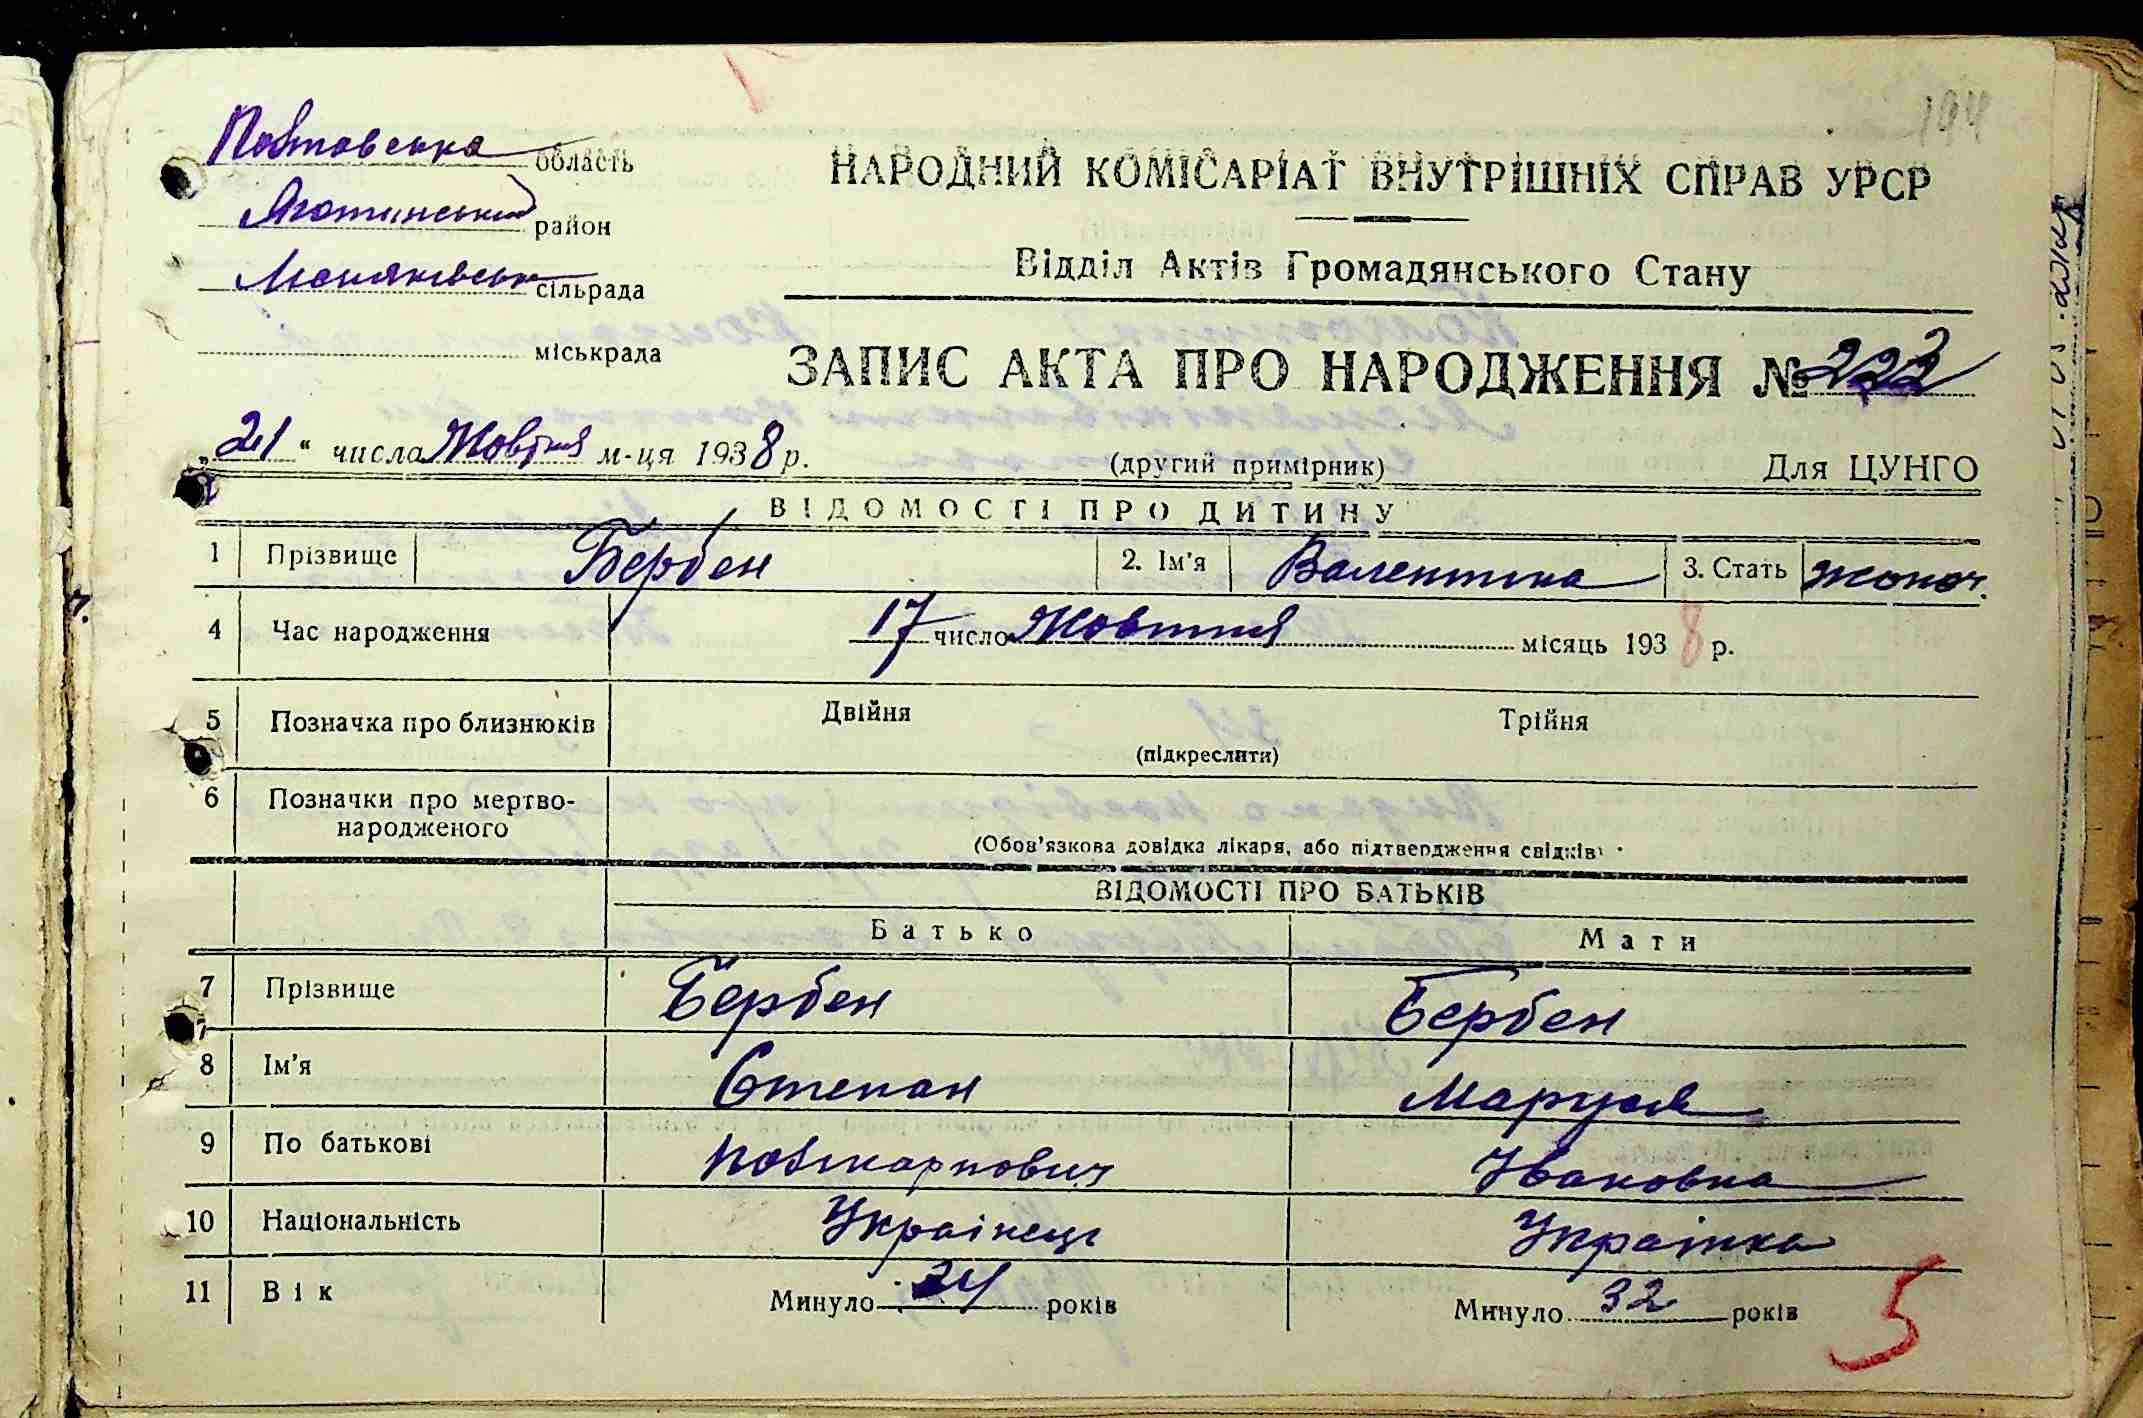 194
Полтавська область
Яготинський район
сільрада
міськрада
НАРОДНИЙ КОМІСАРІАТ ВНУТРІШНІХ СПРАВ УРСР
Відділ Актів Громадянського Стану
ЗАПИС АКТА ПРО НАРОДЖЕННЯ № 222
„21“ числа Жовтня м-ця 1938 р.
(другий примірник)
Для ЦУНГО
ВІДОМОСТІ ПРО ДИТИНУ
1 Прізвище Бербен 2. Ім'я Валентина 3. Стать жоноч.
4 Час народження 17 число Жовтня місяць 1938 р.
5 Позначка про близнюків Двійня Трійня
(підкреслити)
6 Позначки про мертво-
народженого
(Обов'язкова довідка лікаря, або підтвердження свідків)
ВІДОМОСТІ ПРО БАТЬКІВ
Батько Мати
7 Прізвище Бербен Бербен
8 Ім'я Степан Маруся
9 По батькові Полікарпович Івановна
10 Національність Українець Українка
11 Вік Минуло 34 років Минуло 32 років
5